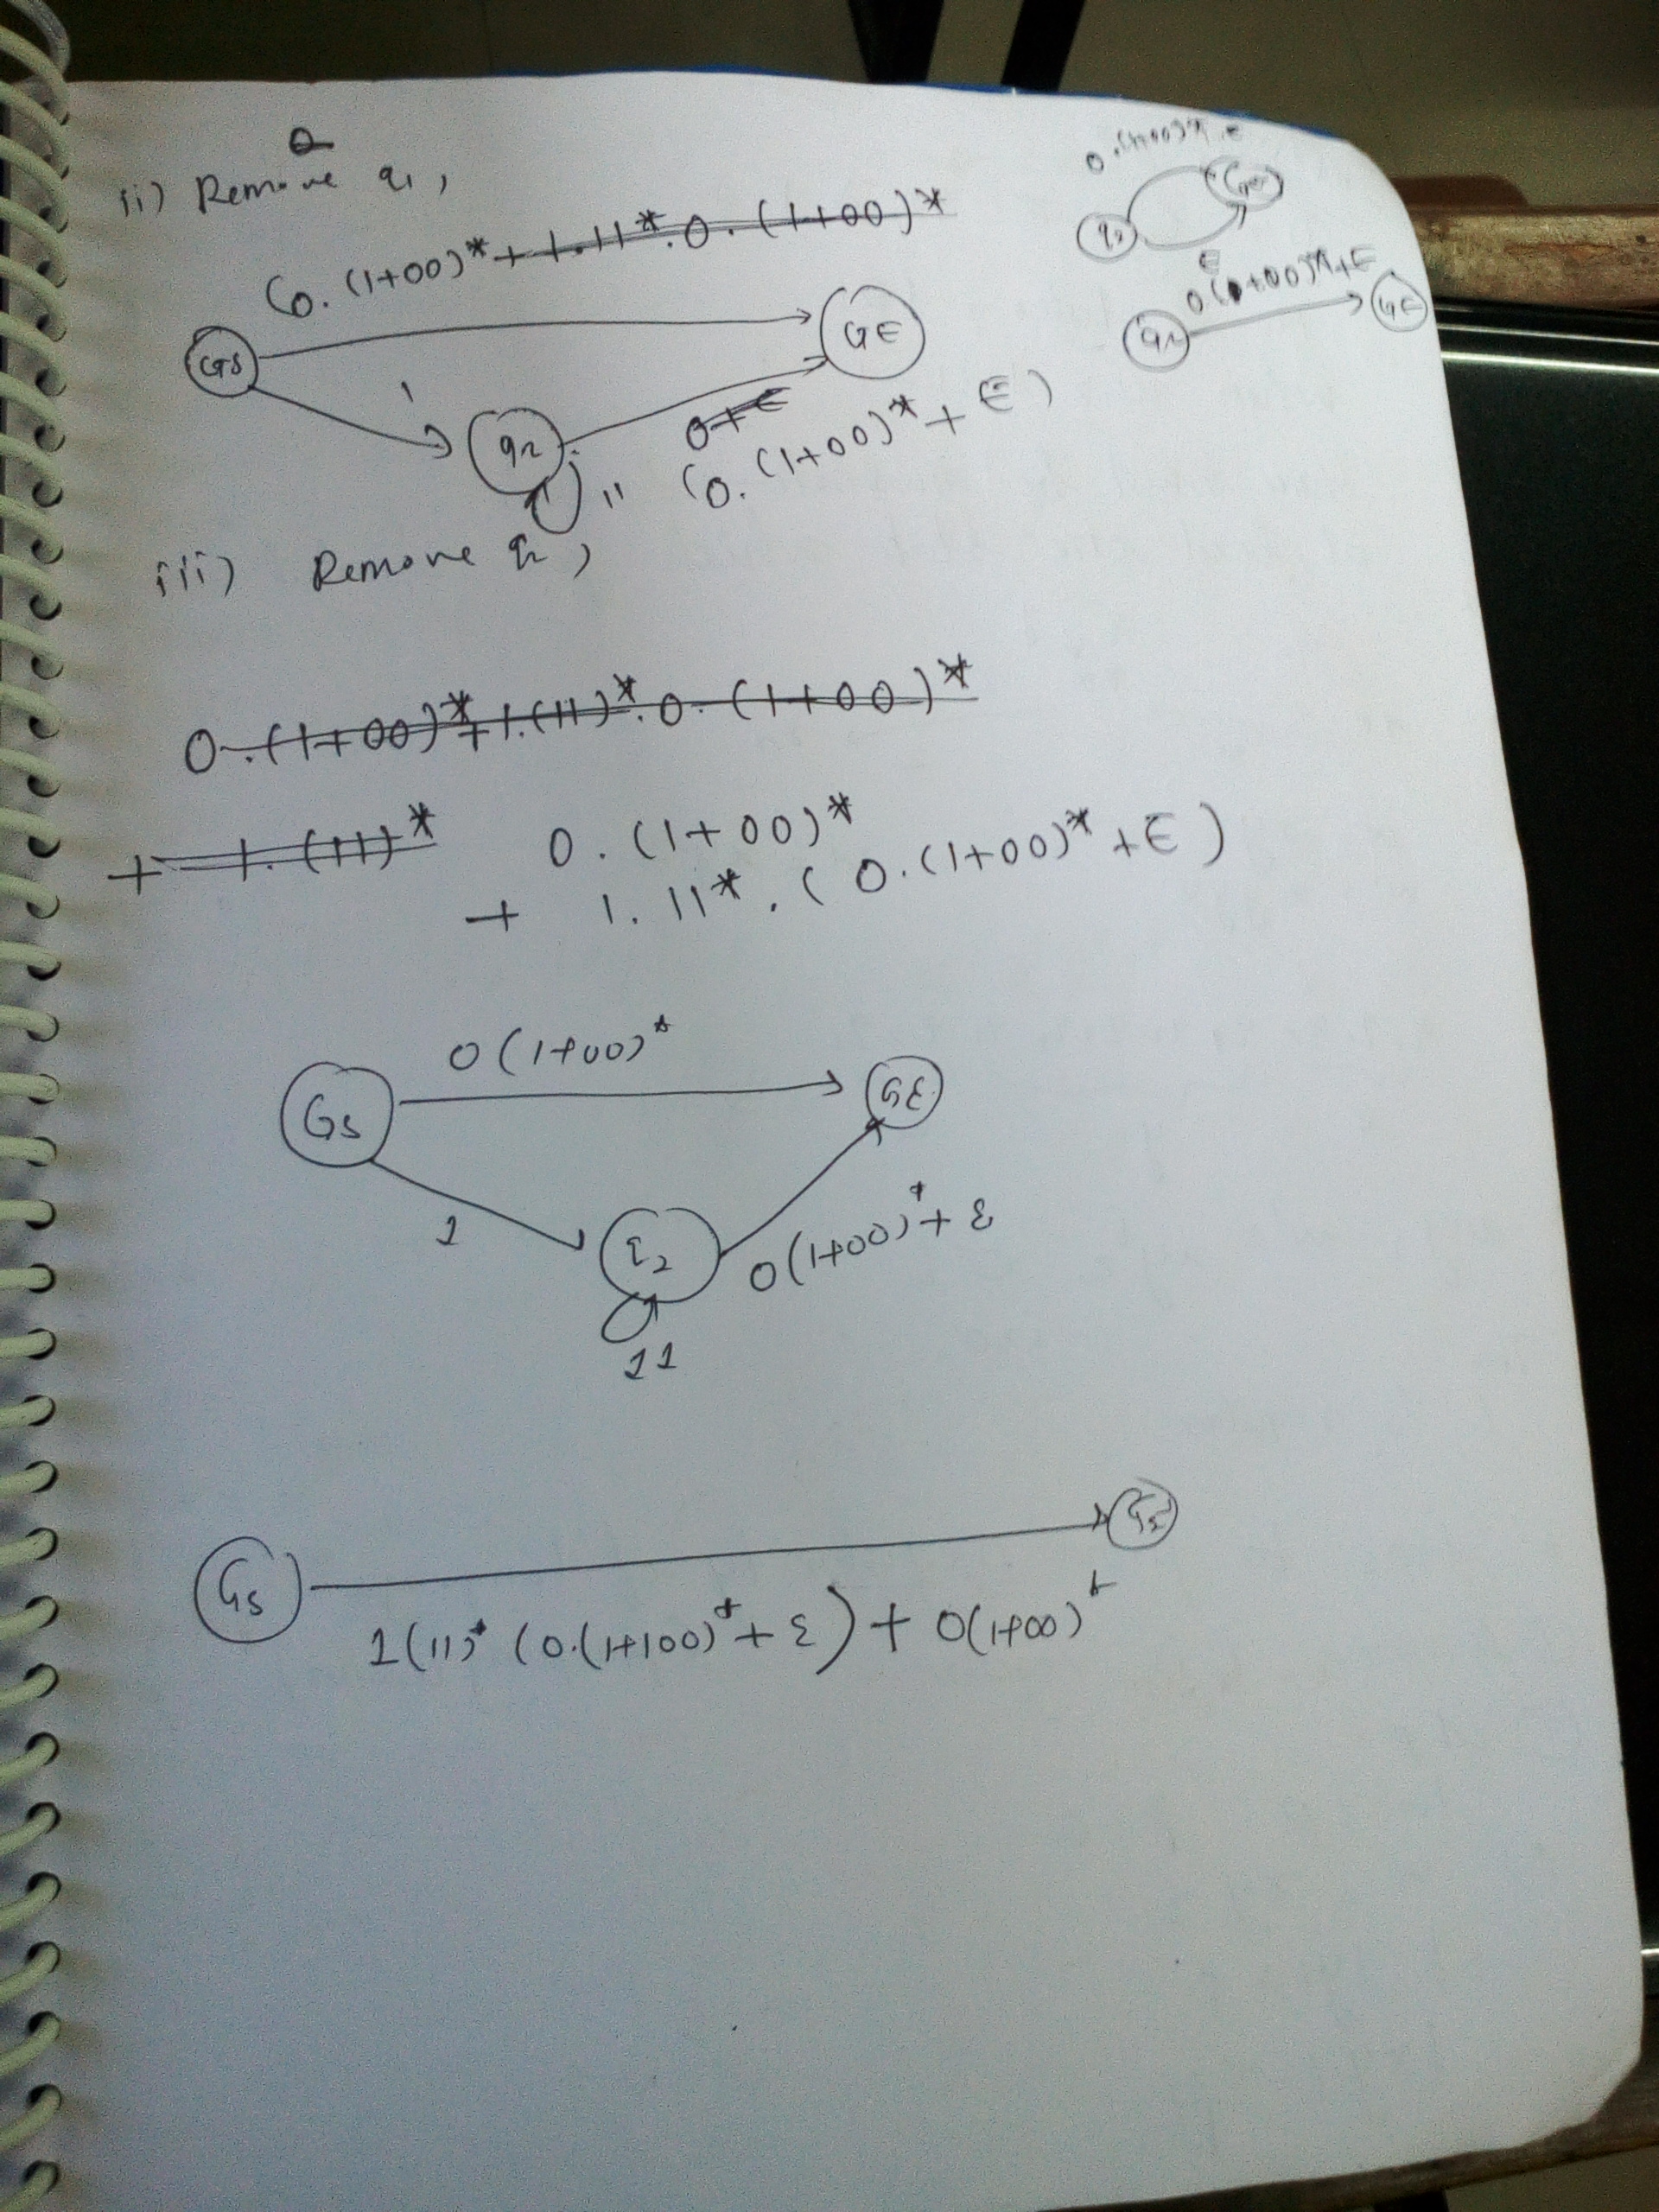 ii) Remove q1,
(0.(1+00)* + 1.11*.0.(1+00)*
GS
GE
1
q2
0+E
11
(0.(1+00)* + E)
0.(1+00)*.E
q2
GE
E
0(1+00)*+E
q2
GE
iii) Remove q2,
0.(1+00)*+1.(11)*.0.(1+00)*
+ 1.(11)*
0.(1+00)*
+ 1.11*.(0.(1+00)*+E)
0(1+00)*
GS
GE
1
q2
0(1+00)*+ε
11
GS
GE
1(11)*(0.(1+100)*+ε)+0(1+00)*